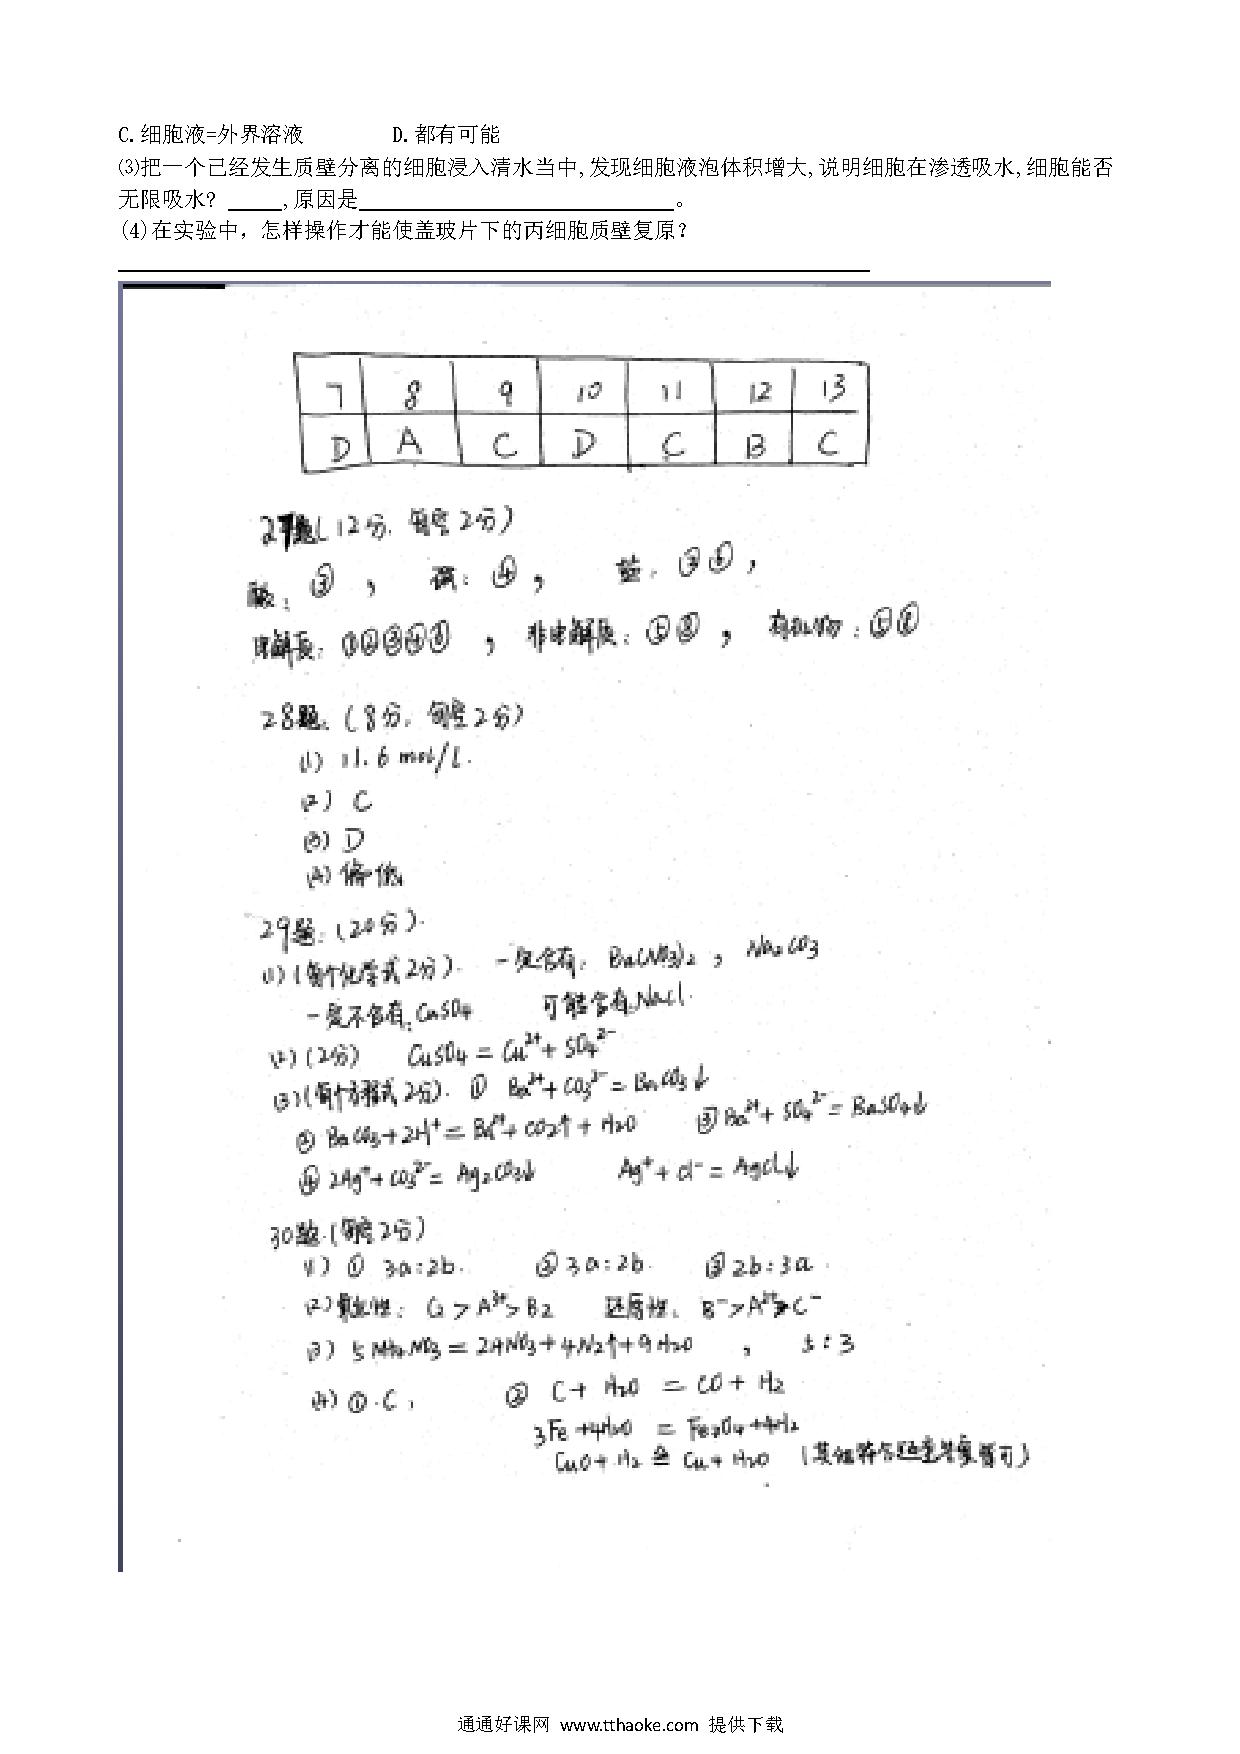 C.细胞液=外界溶液 D.都有可能
⑶把一个已经发生质壁分离的细胞浸入清水当中,发现细胞液泡体积增大,说明细胞在渗透吸水,细胞能否
无限吸水? _____,原因是_____________________________。
(4)在实验中，怎样操作才能使盖玻片下的丙细胞质壁复原？
7 8 9 10 11 12 13
D A C D C B C
27题(12分，每空2分)
酸：③， 碱：④， 盐：
电解质： ， 非电解质：⑤⑧， 有机物：
28题：(8分，每空2分)
(1) 11.6 mol/L.
(2) C
(3) D
(4) 偏低
29题：(20分).
(1)(每个化学式2分). 一定含有：Ba(NO3)2，Na2CO3
一定不含有：CuSO4 可能含有NaCl.
(2)(2分) CuSO4 = Cu2+ + SO42-
(3)(每个方程式2分). ① Ba2+ + CO32- = BaCO3↓
② BaCO3 + 2H+ = Ba2+ + CO2↑ + H2O ③ Ba2+ + SO42- = BaSO4↓
④ 2Ag+ + CO32- = Ag2CO3↓ Ag+ + Cl- = AgCl↓
30题.(每空2分)
(1) ① 3a:2b. ② 3a:2b. ③ 2b:3a.
(2)氧化性：C2 > A3+ > B2 还原性：B- > A2+ > C-
(3) 5NH4NO3 = 2HNO3 + 4N2↑ + 9H2O ， 5:3
(4) ① C， ② C + H2O = CO + H2
3Fe + 4H2O = Fe3O4 + 4H2
CuO + H2 ≜ Cu + H2O (其他符合题意答案皆可)
通通好课网 www.tthaoke.com 提供下载